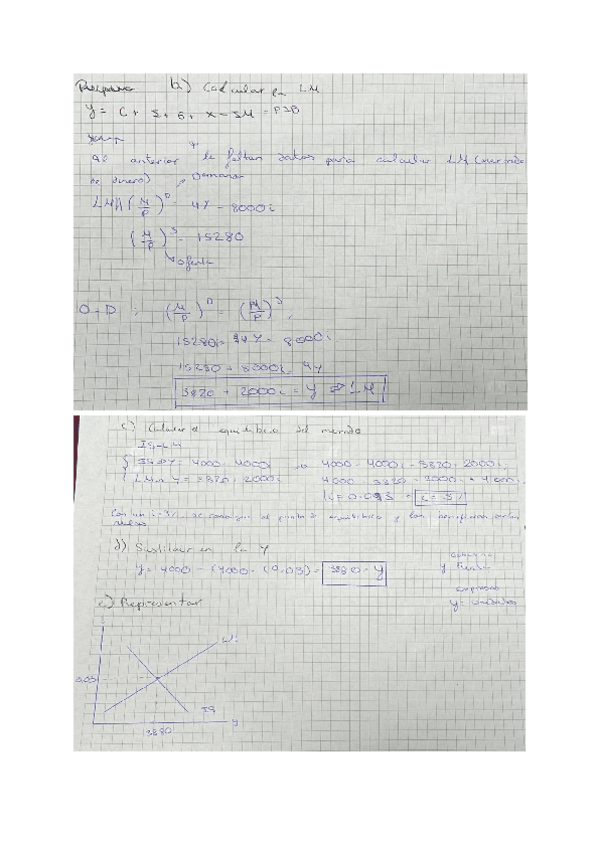 b) Calcular la LM
Y = C + I + G + X - IM = PIB
anterior le faltan datos para calcular LM (mercado
de dinero) Demanda
LM (M/P)^D = 4Y - 8000i
(M/P)^S = 15280
Oferta
O=D : (M/P)^D = (M/P)^S
15280 = 4Y - 8000i
15280 + 8000i = 4Y
3820 + 2000i = Y => LM
c) Calcular el equilibrio del mercado
IS=LM
IS Y= 4000 - 4000i 4000 - 4000i = 3820 + 2000i
LM Y = 3820 + 2000i 4000 - 3820 = 2000i + 4000i
i = 0.03 = i = 3%
Con un i=3% se el punto equilibrio y los
d) Sustituir en la Y
Y = 4000 - (4000 · (0.03) = 3880 = Y
Y Renta
empresas
Y=
e) Representar
i
LM
0.03
IS
Y
3880